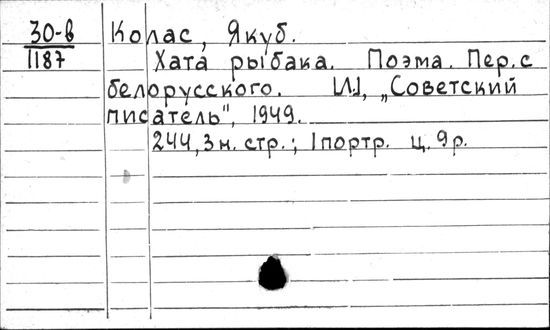 30-в
1187
Колас, Якуб.
Хата рыбака. Поэма. Пер. с
белорусского. М., „Советский
писатель", 1949.
244, 3 н. стр.; 1 портр. ц. 9 р.